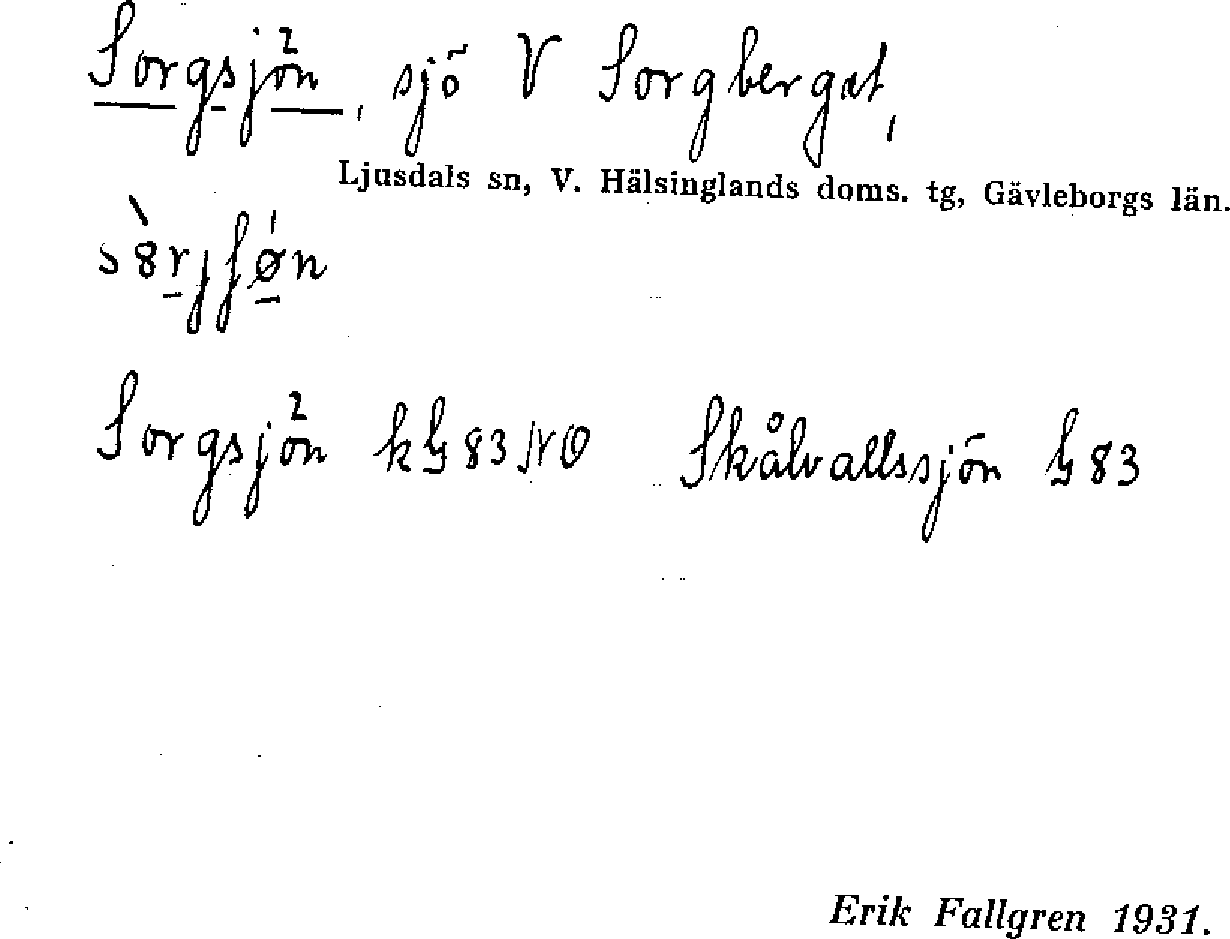 Sorgsjön, sjö V Sorgberget,
Ljusdals sn, V. Hälsinglands doms. tg, Gävleborgs län.
Sorgsjön kG83NO Skålvallssjön G83
Erik Fallgren 1931.